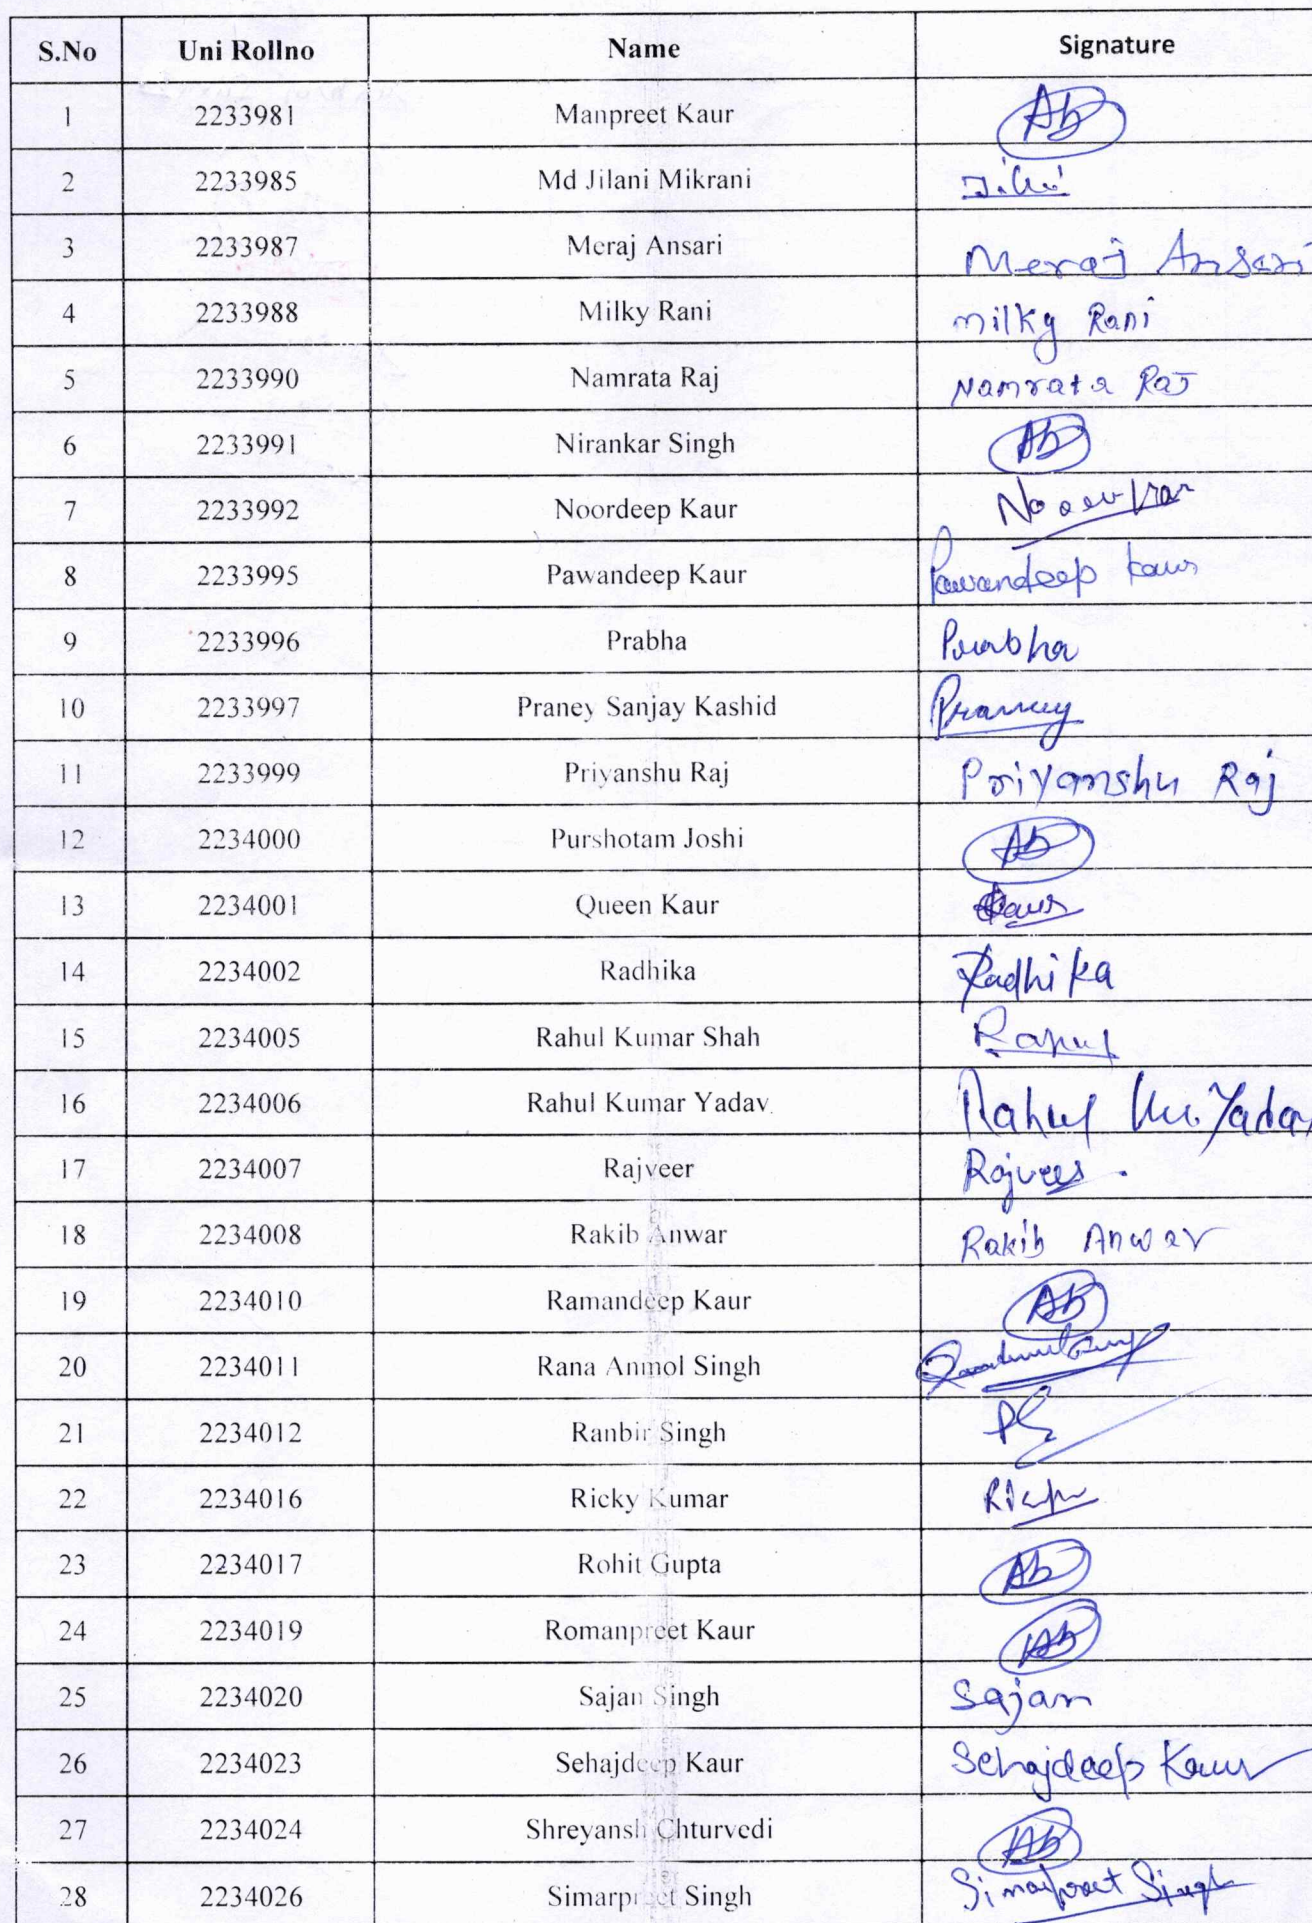 S.No Uni Rollno Name Signature
1 2233981 Manpreet Kaur Ab
2 2233985 Md Jilani Mikrani
3 2233987 Meraj Ansari Meraj Ansari
4 2233988 Milky Rani milky Rani
5 2233990 Namrata Raj Namrata Raj
6 2233991 Nirankar Singh Ab
7 2233992 Noordeep Kaur
8 2233995 Pawandeep Kaur Pawandeep kaur
9 2233996 Prabha Prabha
10 2233997 Praney Sanjay Kashid Praney
11 2233999 Priyanshu Raj Priyanshu Raj
12 2234000 Purshotam Joshi Ab
13 2234001 Queen Kaur Kaur
14 2234002 Radhika Radhika
15 2234005 Rahul Kumar Shah Rahul
16 2234006 Rahul Kumar Yadav Rahul Ku. Yadav
17 2234007 Rajveer Rajveer.
18 2234008 Rakib Anwar Rakib Anwar
19 2234010 Ramandeep Kaur Ab
20 2234011 Rana Anmol Singh
21 2234012 Ranbir Singh
22 2234016 Ricky Kumar
23 2234017 Rohit Gupta Ab
24 2234019 Romanpreet Kaur Ab
25 2234020 Sajan Singh Sajan
26 2234023 Sehajdeep Kaur Sehajdeep Kaur
27 2234024 Shreyansh Chturvedi Ab
28 2234026 Simarpreet Singh Simarpreet Singh